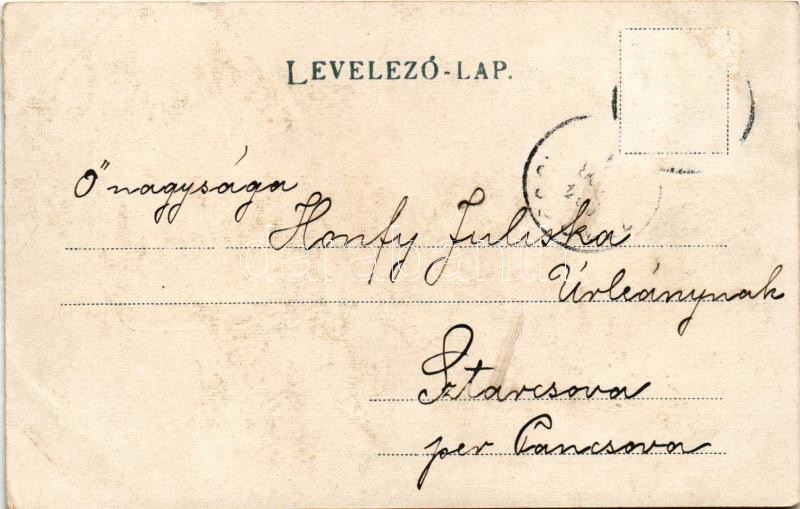 LEVELEZŐ-LAP.
Ő nagysága
Honfy Juliska
Úrleánynak
Sztarcsova
per Pancsova
darabanth